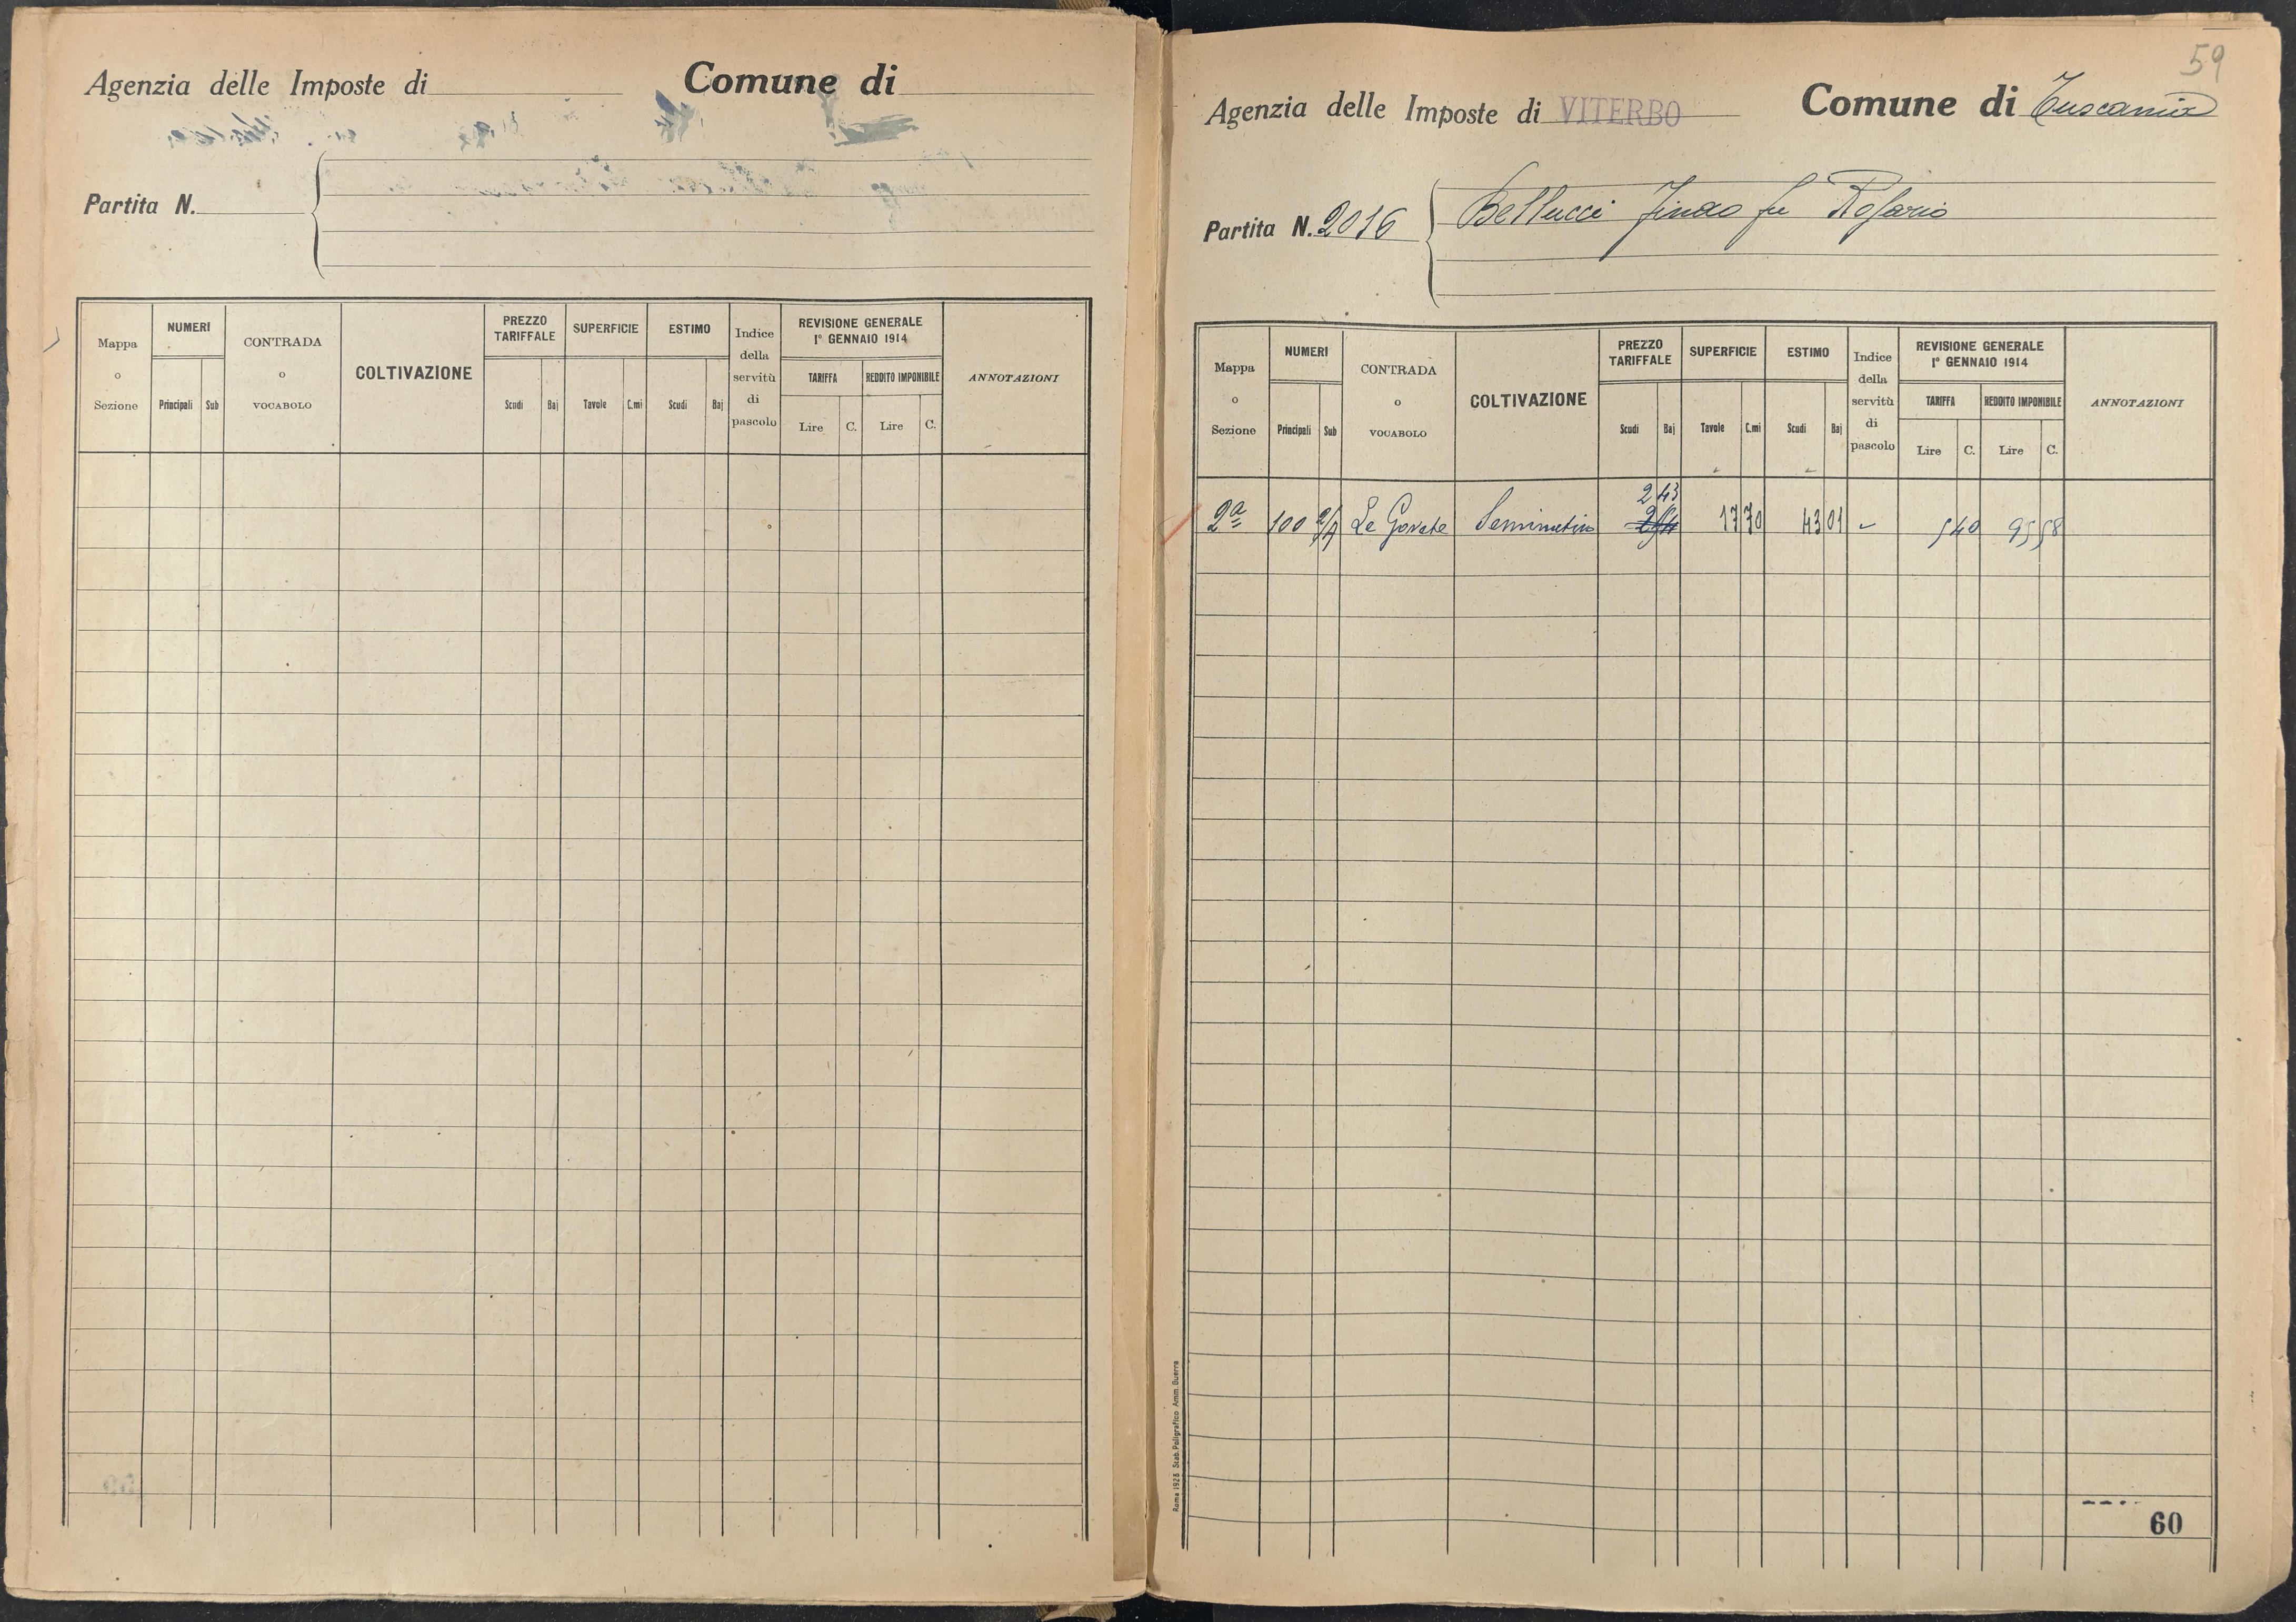 Agenzia delle Imposte di
Comune di
Partita N.
Mappa o Sezione
NUMERI
Principali
Sub
CONTRADA o VOCABOLO
COLTIVAZIONE
PREZZO TARIFFALE
Scudi
Baj
SUPERFICIE
Tavole
C.mi
ESTIMO
Scudi
Baj
Indice della servitù di pascolo
REVISIONE GENERALE
1° GENNAIO 1914
TARIFFA
REDDITO IMPONIBILE
Lire
C.
Lire
C.
ANNOTAZIONI
59
Agenzia delle Imposte di VITERBO
Comune di Tuscania
Partita N. 2016
Bellucci fu Rosario
Mappa o Sezione
NUMERI
Principali
Sub
CONTRADA o VOCABOLO
COLTIVAZIONE
PREZZO TARIFFALE
Scudi
Baj
SUPERFICIE
Tavole
C.mi
ESTIMO
Scudi
Baj
Indice della servitù di pascolo
REVISIONE GENERALE
1° GENNAIO 1914
TARIFFA
REDDITO IMPONIBILE
Lire
C.
Lire
C.
ANNOTAZIONI
2 43
2ª 100 2/A Le Seminativo 17 70 43 01 5 40 95 58
Roma 1926 Stab. Poligrafico Amm. Guerra
60